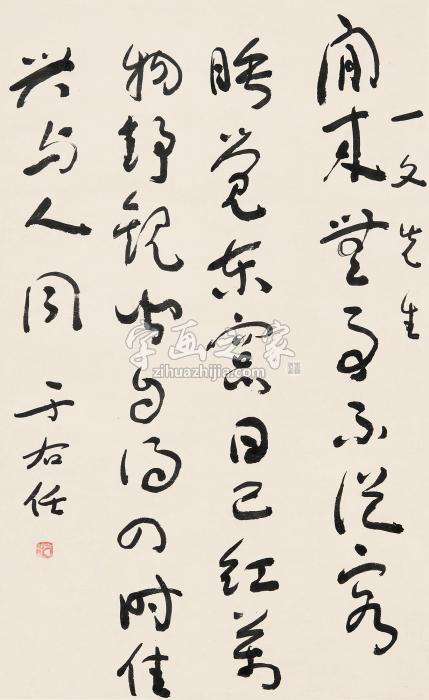 一文先生
閒來無事不從容
睡覺東窗日已紅萬
物靜觀皆自得四時佳
興與人同 于右任
字画之家
zihuazhijia.com